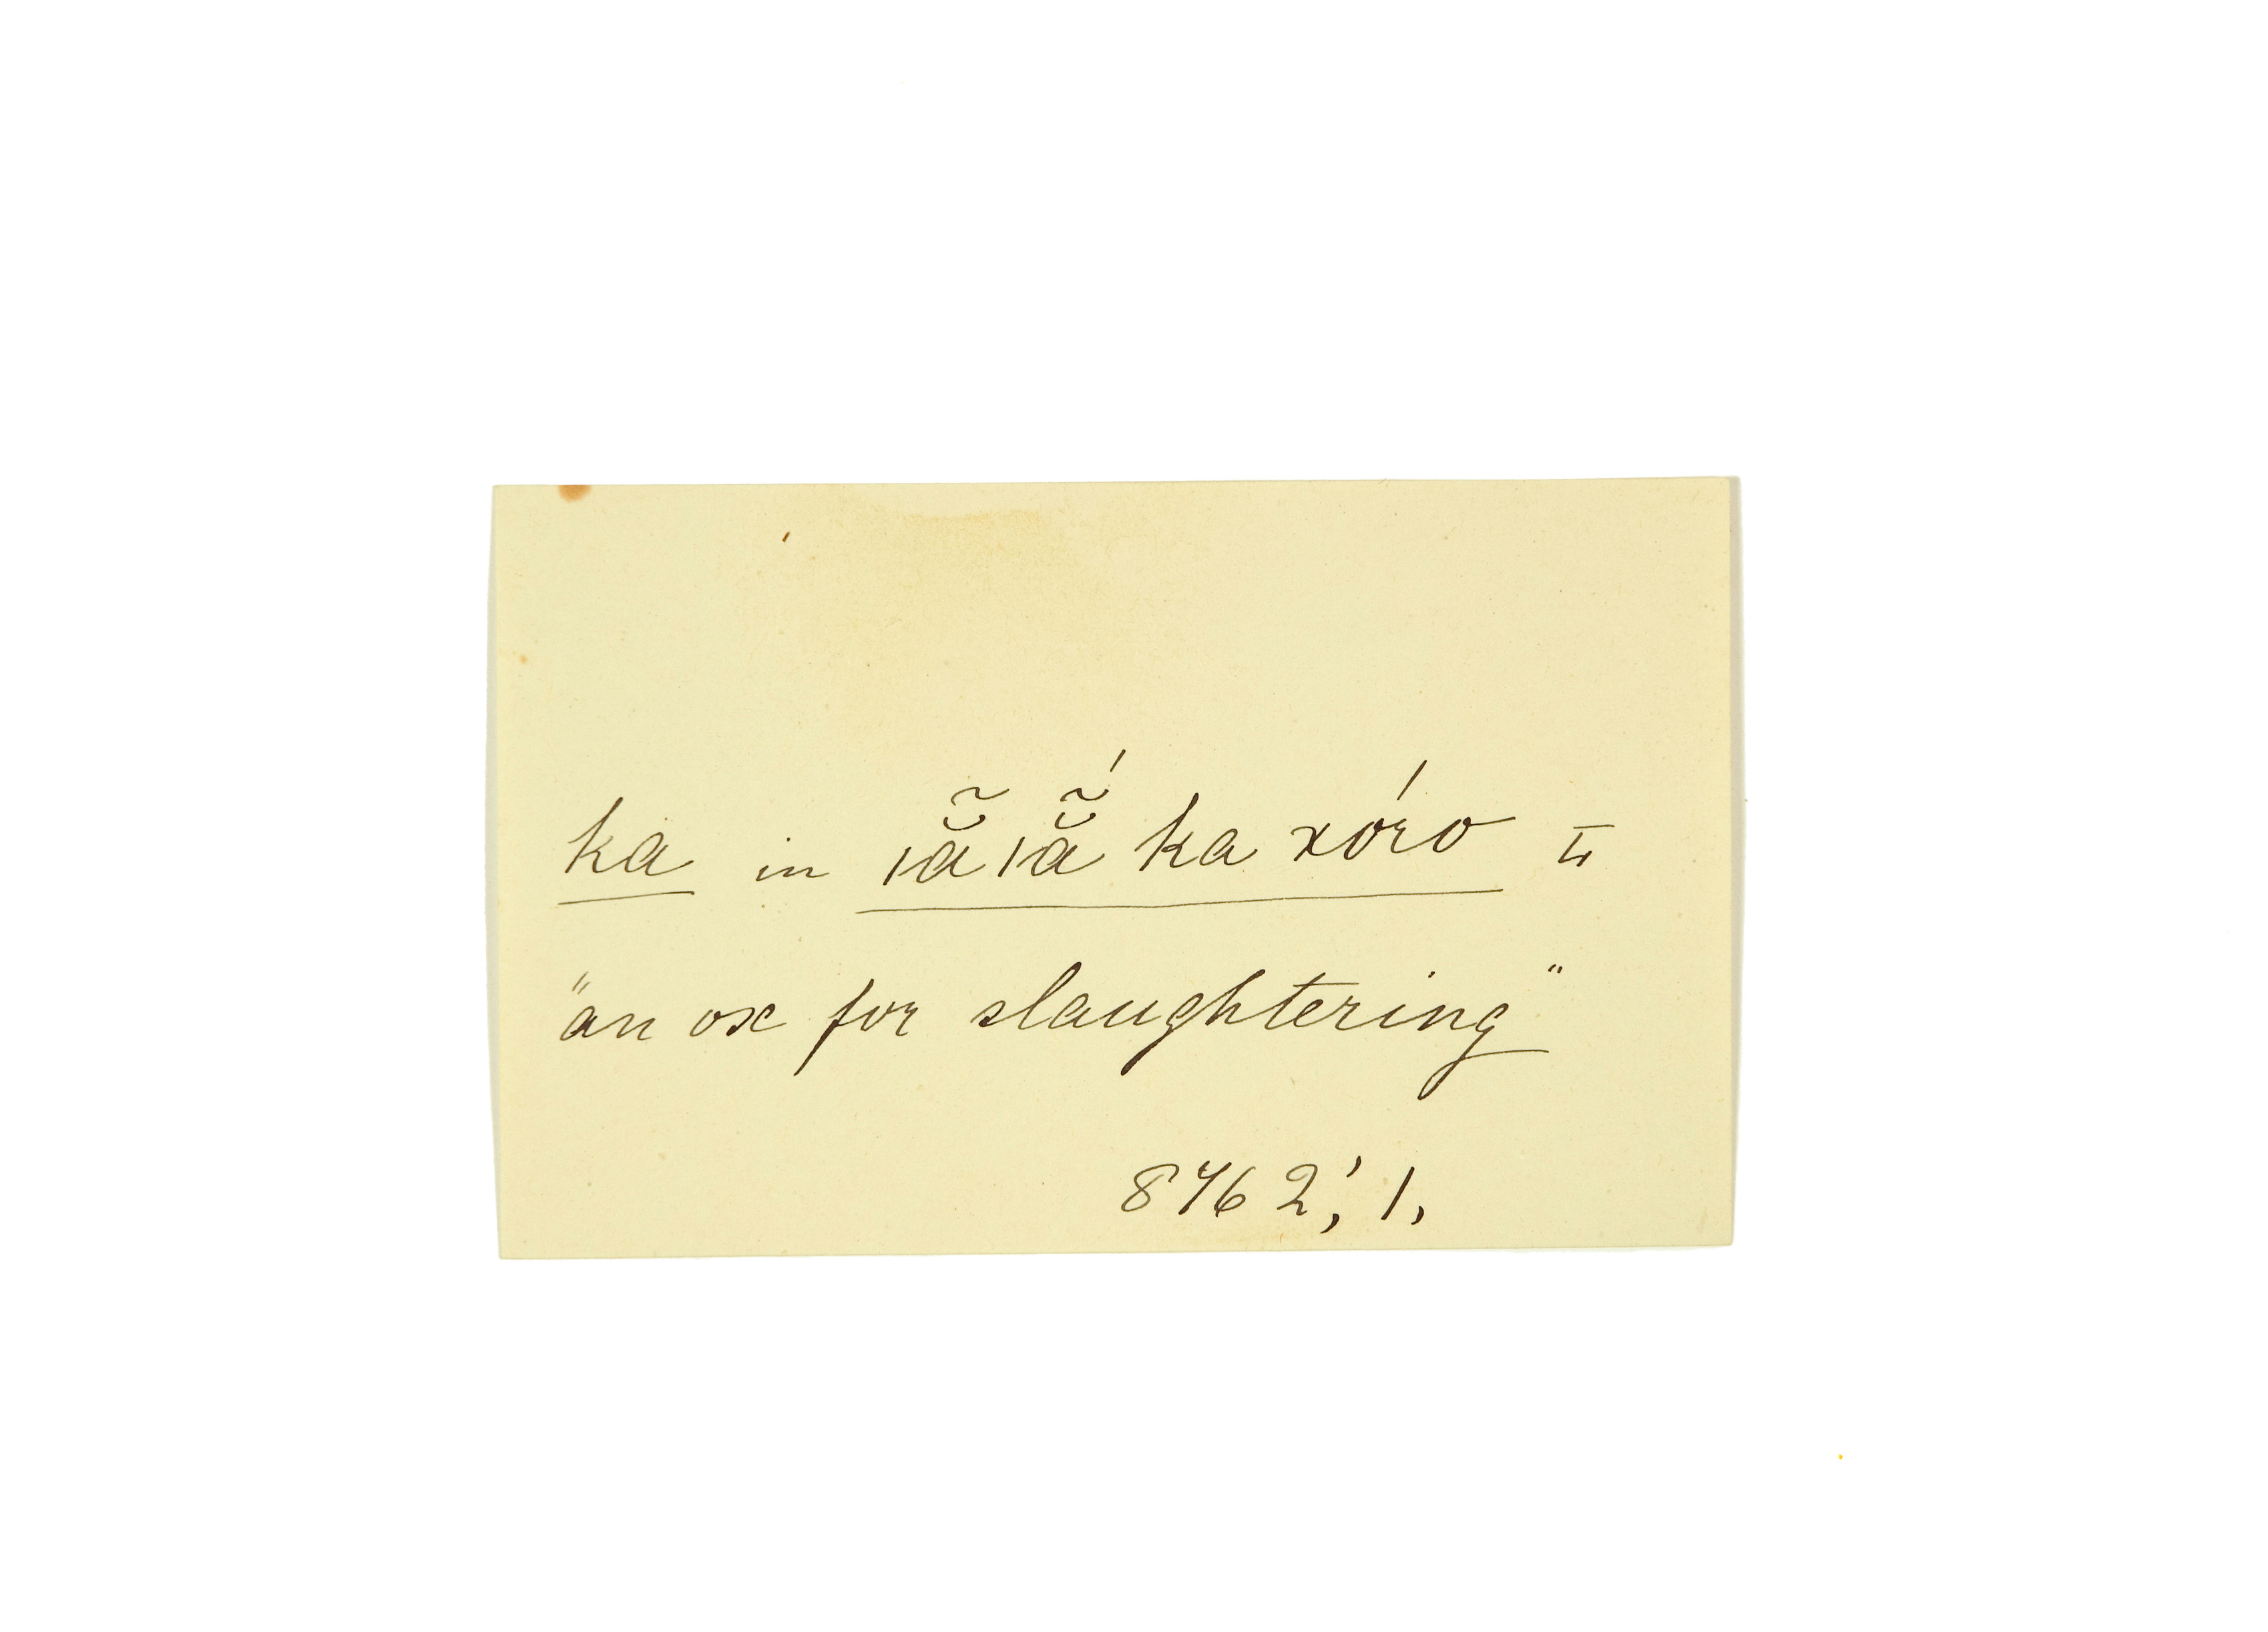 ka in ǀã̆ǀã̆́ ka xóro
"an ox for slaughtering"
8462; 1,